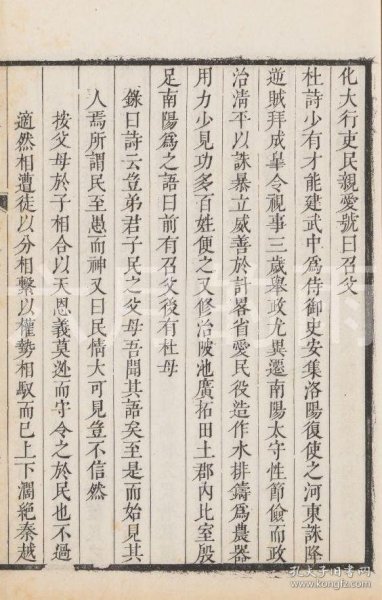 化大行吏民親愛號曰召父
杜詩少有才能建武中爲侍御史安集洛陽復使之河東誅降
逆賊拜成臯令視事三歲舉政尤異遷南陽太守性節儉而政
治清平以誅暴立威善於計畧省愛民役造作水排鑄爲農器
用力少見功多百姓便之又修治陂池廣拓田土郡內比室殷
足南陽爲之語曰前有召父後有杜母
錄曰詩云豈弟君子民之父母吾聞其語矣至是而始見其
人焉所謂民至愚而神又曰民情大可見豈不信然
按父母於子相合以天恩義莫逃而守令之於民也不過
適然相遭徒以分相繫以權勢相馭而已上下濶絶秦越
孔夫子旧书网